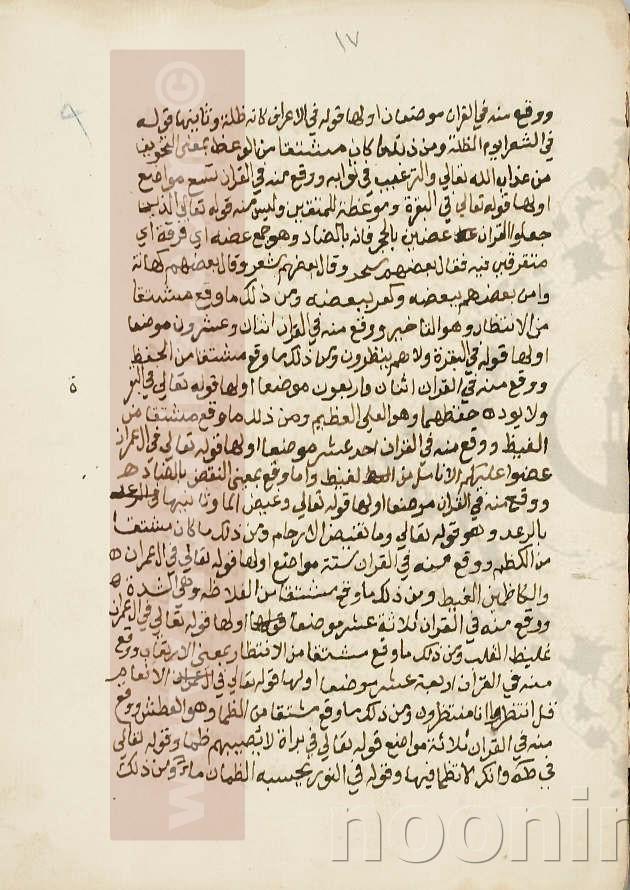 ١٧
ووقع منه في القران موضعان اولها قوله في الاعراف كانه ظلة وثانيها قوله
في الشعرا يوم الظلة ومن ذلك ما كان مشتقا من الوعظ بمعنى التخويف
من عذاب الله تعالي والترغيب في ثوابه ووقع منه في القران تسع مواضع
اولها قوله تعالي في البقرة وموعظة للمتقين وليس منه قوله تعالي الذين
جعلوا القران عضين بالحجر فانه بالضاد وهو جمع عضه اي فرقة اي
متفرقين فيه فقال بعضهم سحر وقال بعضهم شعر وقال بعضهم كهانة
وامن بعضهم ببعضه وكفر ببعضه ومن ذلك ما وقع مشتقا
من الانتظار وهو التاخير ووقع منه في القران اثنان وعشرون موضعا
اولها قوله في البقرة ولا هم ينظرون ومن ذلك ما وقع مشتقا من الحفظ
ووقع منه في القران اثنان واربعون موضعا اولها قوله تعالي في البقر
ة
ولا يوده حفظهما وهو العلي العظيم ومن ذلك ما وقع مشتقا من
الغيظ ووقع منه في القران احد عشر موضعا اولها قوله تعالي في ال عمران
عضوا عليكم الانامل من الغيظ واما وقع بمعنى النقص بالضاد
ووقع منه في القران موضعا اولها قوله تعالي وغيض الما وثانيها في
بالرعد وهو قوله تعالي وما تغيض الارحام ومن ذلك ما كان مشتقا
من الكظم ووقع منه في القران ستة مواضع اولها قوله تعالي في ال عمران
والكاظمين الغيظ ومن ذلك ما وقع مشتقا من الغلاظه وهي الشدة
ووقع منه في القران ثلاثة عشر موضعا اولها قوله تعالي في ال عمران
غليظ القلب ومن ذلك ما وقع مشتقا من الانتظار بمعنى الارتقاب ووقع
منه في القران اربعة عشر موضعا اولها قوله تعالي في الانعام
قل انتظروا انا منتظرون ومن ذلك ما وقع مشتقا من الظما وهو العطش ووقع
منه في القران ثلاثة مواضع قوله تعالي في براة لا تصيبهم ظما وقوله تعالي
في طه وانك لا تظما فيها وقوله في النور يحسبه الظمان ماء ومن ذلك
www.
©
noonin